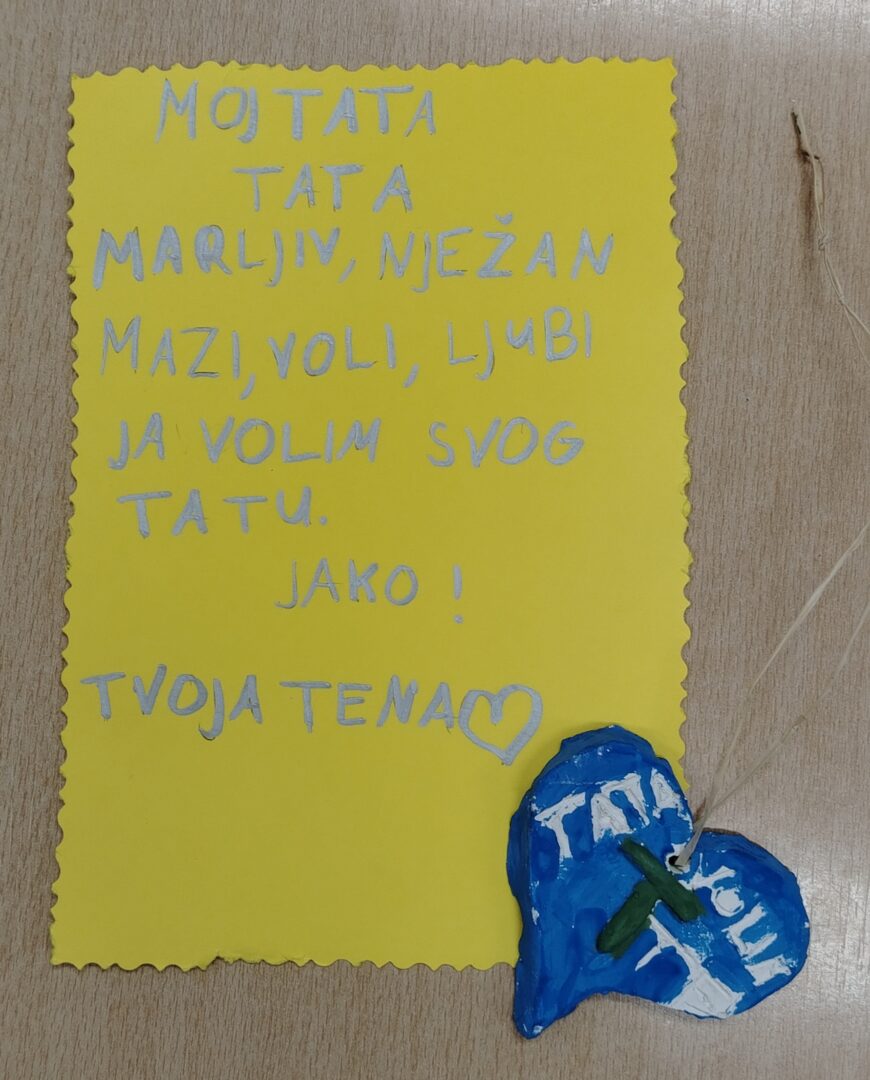 MOJ TATA
TATA
MARLJIV, NJEŽAN
MAZI, VOLI, LJUBI
JA VOLIM SVOG
TATU.
JAKO!
TVOJA TENA
TATA